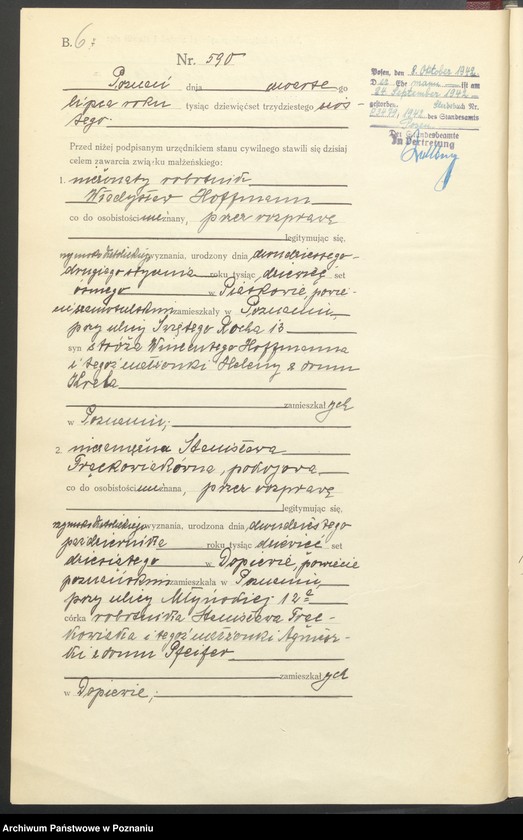 B. 6
Nr. 590
Poznań dnia czwartego
lipca roku tysiąc dziewięćset trzydziestego szós-
tego
Przed niżej podpisanym urzędnikiem stanu cywilnego stawili się dzisiaj
celem zawarcia związku małżeńskiego:
1. nieżonaty robotnik
Władysław Hoffmann
co do osobistości nieznany, przez rozprawę
legitymując się,
rzymsko katolickiego wyznania, urodzony dnia dwudziestego-
drugiego stycznia roku tysiąc dziewięć set
ósmego w Piotkowie, powie-
cie szamotulskim zamieszkały w Poznaniu,
przy ulicy Świętego Rocha 13
syn stróża Wincentego Hoffmanna
i tegoż małżonki Heleny z domu
Kreta
zamieszkałych
w Poznaniu;
2. niezamężna Stanisława
Frąckowiakówna, pokojowa
co do osobistości nieznana, przez rozprawę
legitymując się,
rzymsko katolickiego wyznania, urodzona dnia dwudziestego
października roku tysiąc dziewięć set
dziesiątego w Dopiewie, powiecie
poznańskim zamieszkała w Poznaniu,
przy ulicy Młyńskiej 12a
córka robotnika Stanisława Frąc-
kowiaka i tegoż małżonki Agniesz-
ki z domu Pfeifer
zamieszkałych
w Dopiewie;
Posen, den 8. Oktober 1942
D er Ehemann ist am
24. September 1942
gestorben. Sterbebuch Nr.
1942 des Standesamts
Posen
Der Standesbeamte
In Vertretung
Archiwum Państwowe w Poznaniu